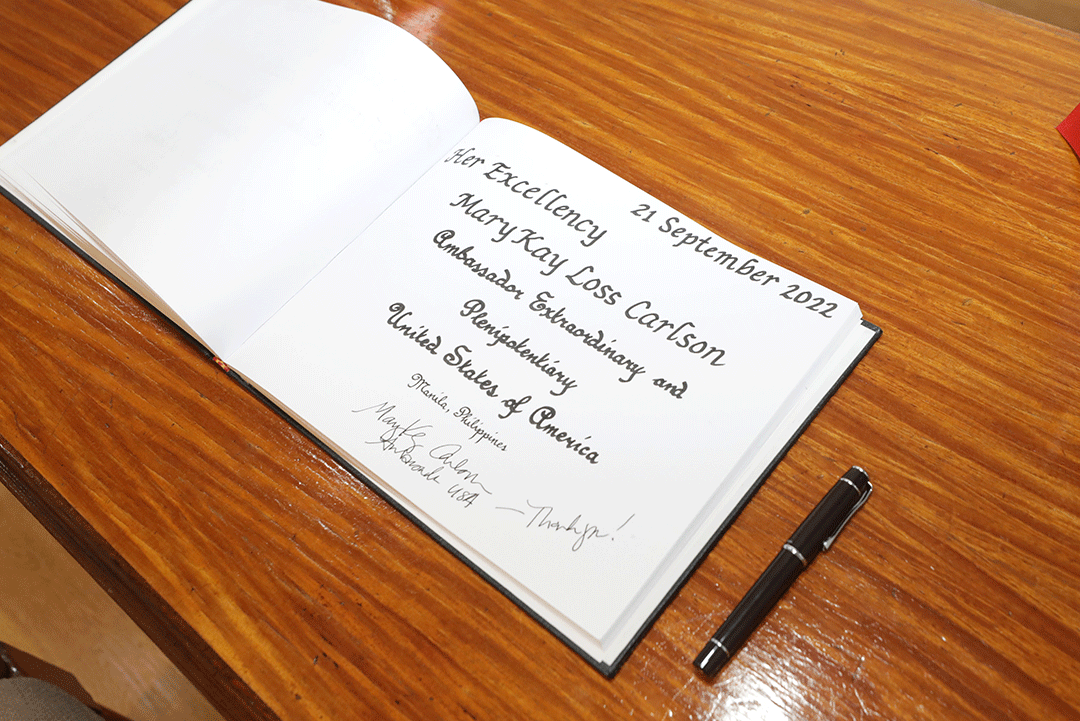 21 September 2022
Her Excellency
Mary Kay Loss Carlson
Ambassador Extraordinary and
Plenipotentiary
United States of America
Manila, Philippines
MaryKay Carlson
Ambassador USA
— Thank you!